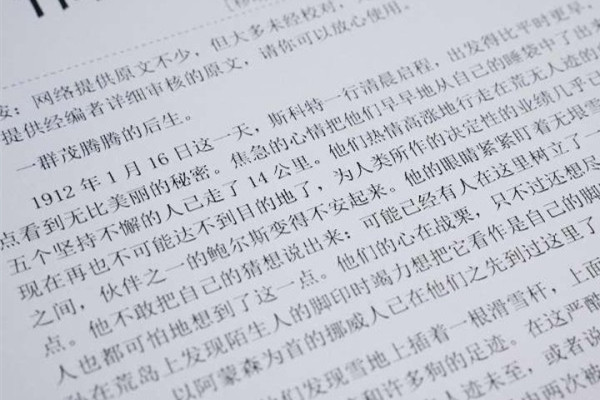 按：网络提供原文不少，但大多未经校对，
提供经编者详细审核的原文，请你可以放心使用。
一群茂腾腾的后生。
1912 年 1 月 16 日这一天，斯科特一行清晨启程，出发得比平时更早，
点看到无比美丽的秘密。焦急的心情把他们早早地从自己的睡袋中了出来
五个坚持不懈的人已走了 14 公里。他们热情高涨地行走在荒无人迹的
现在再也不可能达不到目的地了，为人类所作的决定性的业绩几乎已
之间，伙伴之一的鲍尔斯变得不安起来。他的眼睛紧紧盯着无垠雪
点。他不敢把自己的猜想说出来：可能已经有人在这里树立了一
人也都可怕地想到了这一点。他们的心在战栗，只不过还想尽
孙在荒岛上发现陌生人的脚印时竭力想把它看作是自己的脚
以阿蒙森为首的挪威人已在他们之先到过这里了
们发现雪地上插着一根滑雪杆，上面
和许多狗的足迹。在这严酷
人迹未至，或者说
内两次被